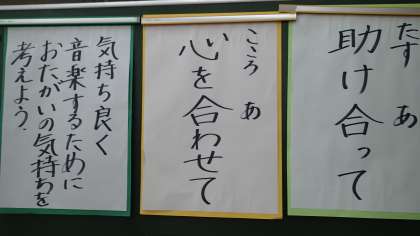 たす あ
助け合って
こころ あ
心を合わせて
気持ち良く
音楽するために
おたがいの気持ちを
考えよう.